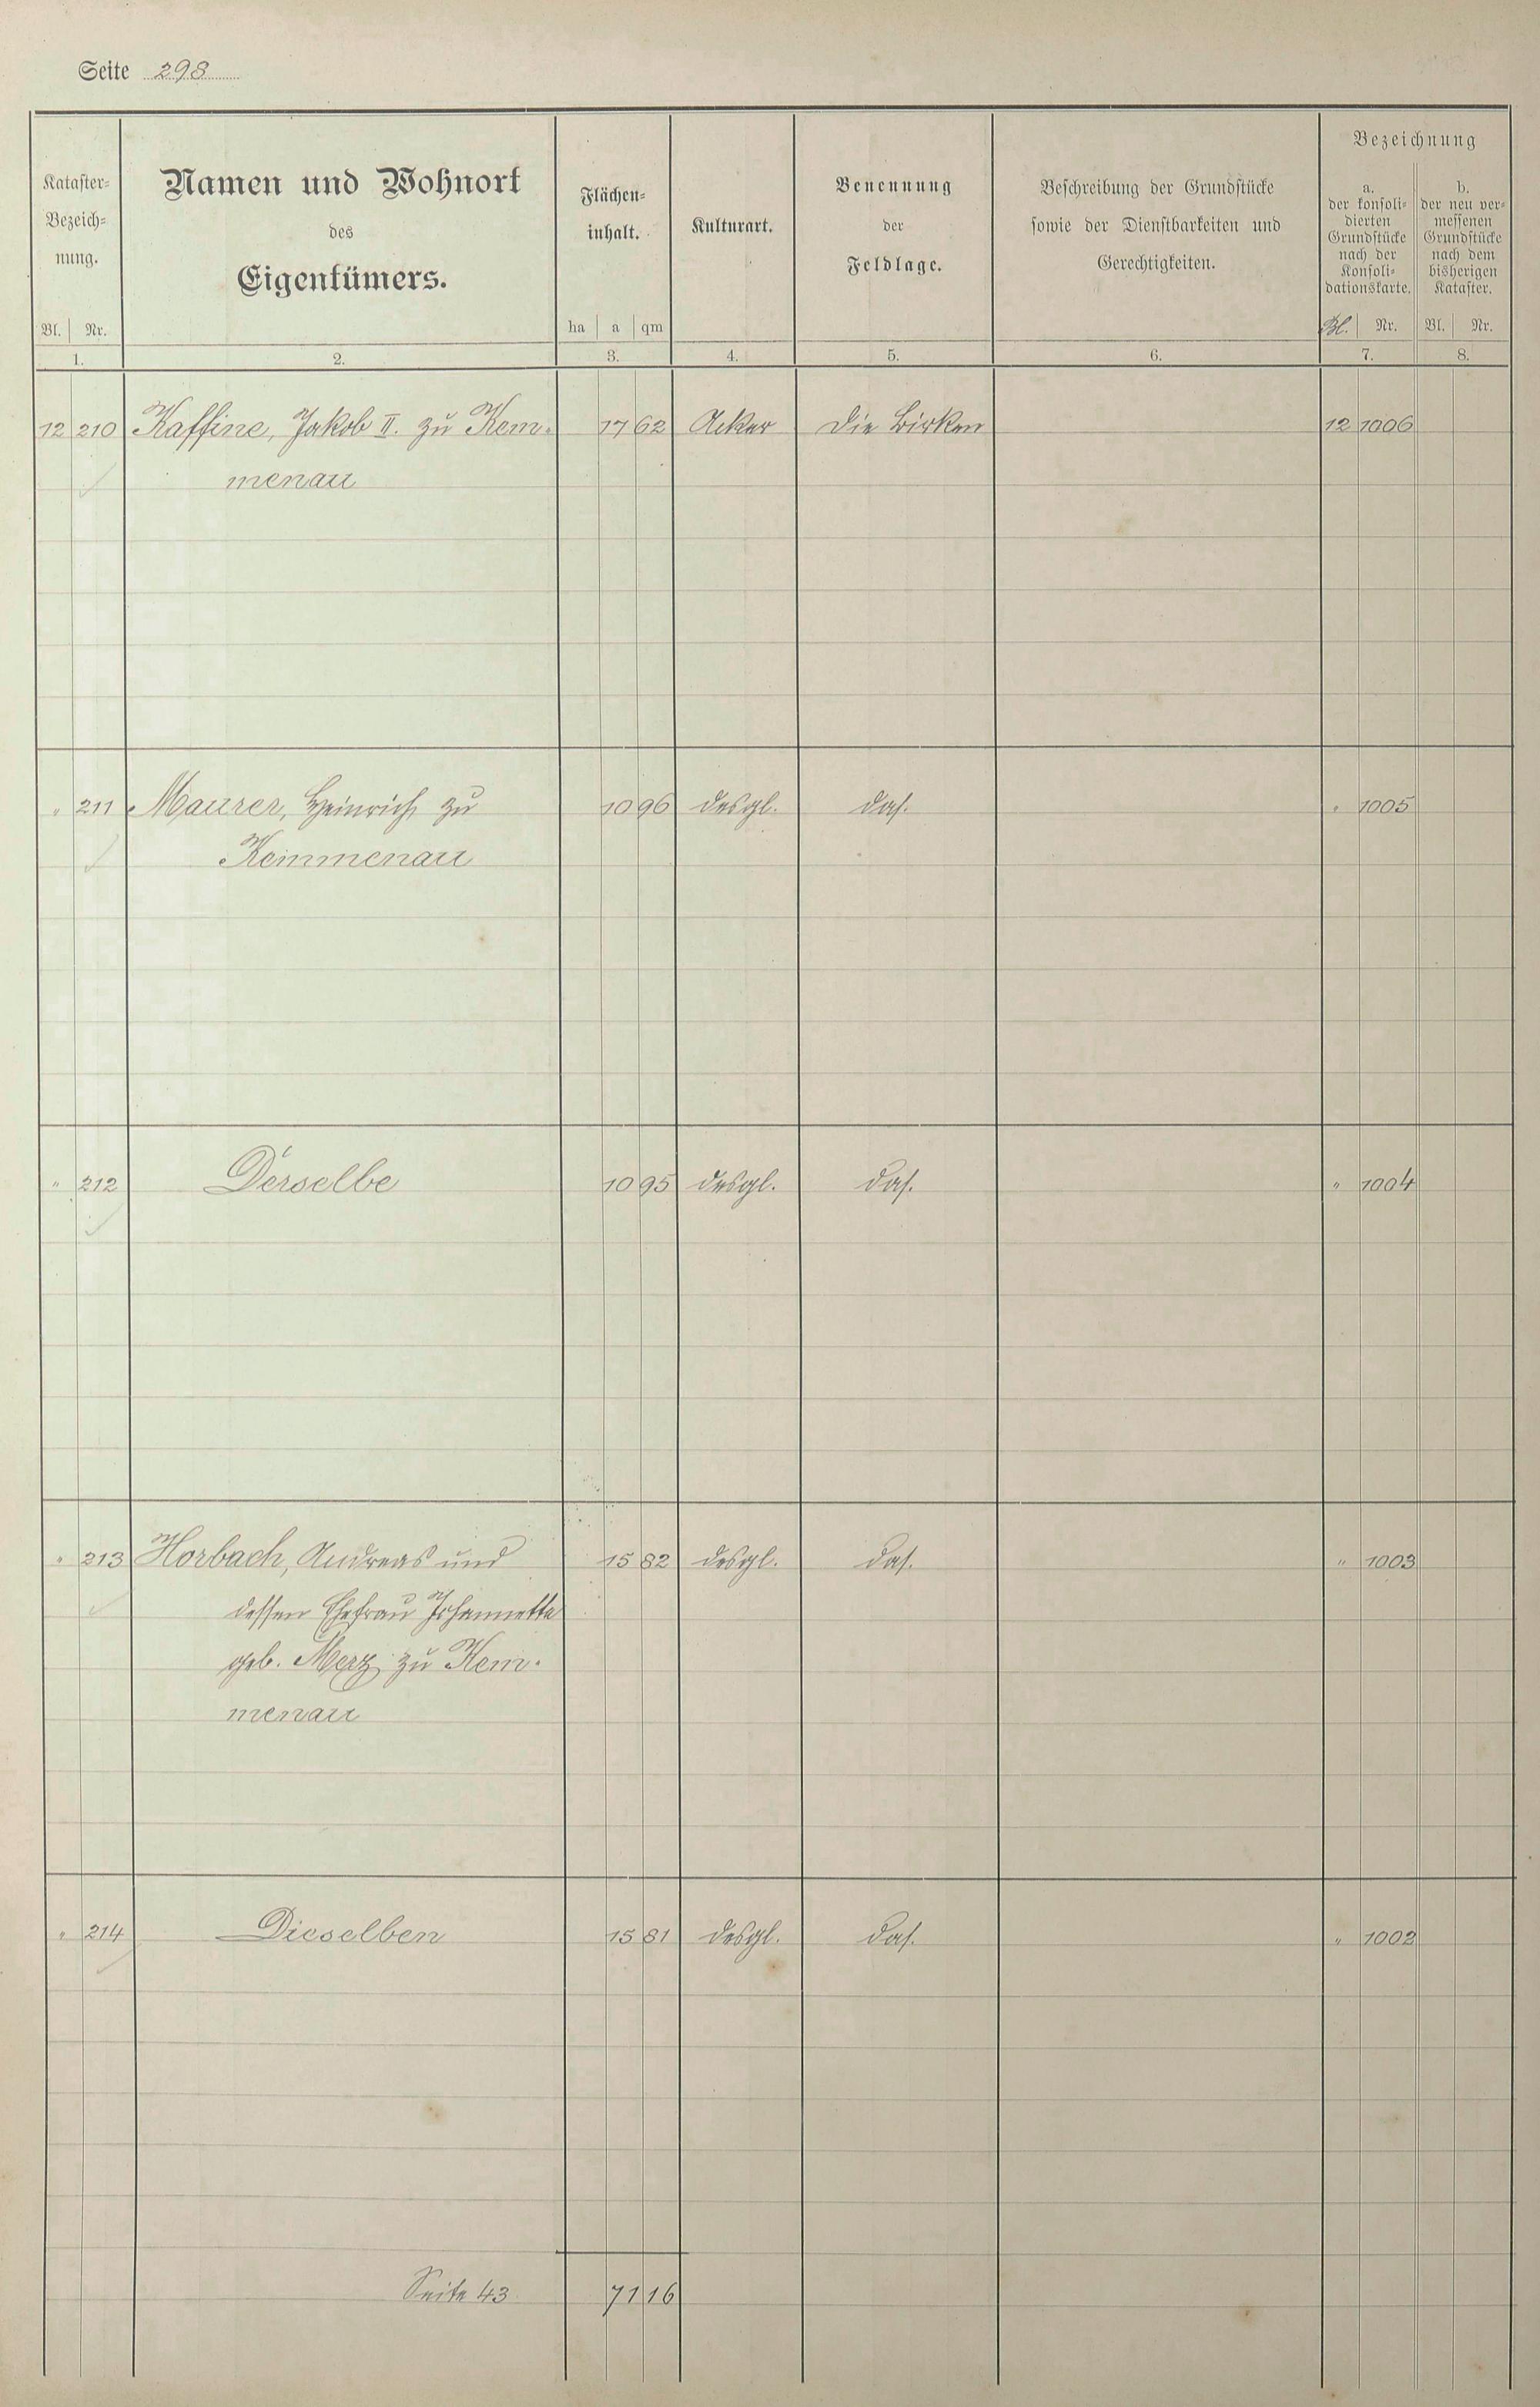 Seite 298
Kataster-
Bezeich-
nung.
Bl. Nr.
1.
Namen und Wohnort
des
Eigentümers.
2.
Flächen-
inhalt.
ha a qm
3.
Kulturart.
4.
Benennung
der
Feldlage.
5.
Beschreibung der Grundstücke
sowie der Dienstbarkeiten und
Gerechtigkeiten.
6.
Bezeichnung
a.
der konsoli-
dierten
Grundstücke
nach der
Konsoli-
dationskarte.
Bl. Nr.
7.
b.
der neu ver-
messenen
Grundstücke
nach dem
bisherigen
Kataster.
Bl. Nr.
8.
12 210 Kaffine, Jakob II. zu Kem- 17 62 Acker Die Birken 12 1006
menau
" 211 Maurer, Heinrich zu 10 96 desgl. das. " 1005
Kemmenau
" 212 Derselbe 10 95 desgl. das. " 1004
" 213 Horbach, Andreas und 15 82 desgl. das. " 1003
dessen Ehefrau Johannetta
geb. Merz zu Kem-
menau
" 214 Dieselben 15 81 desgl. das. " 1002
Seite 43 71 16